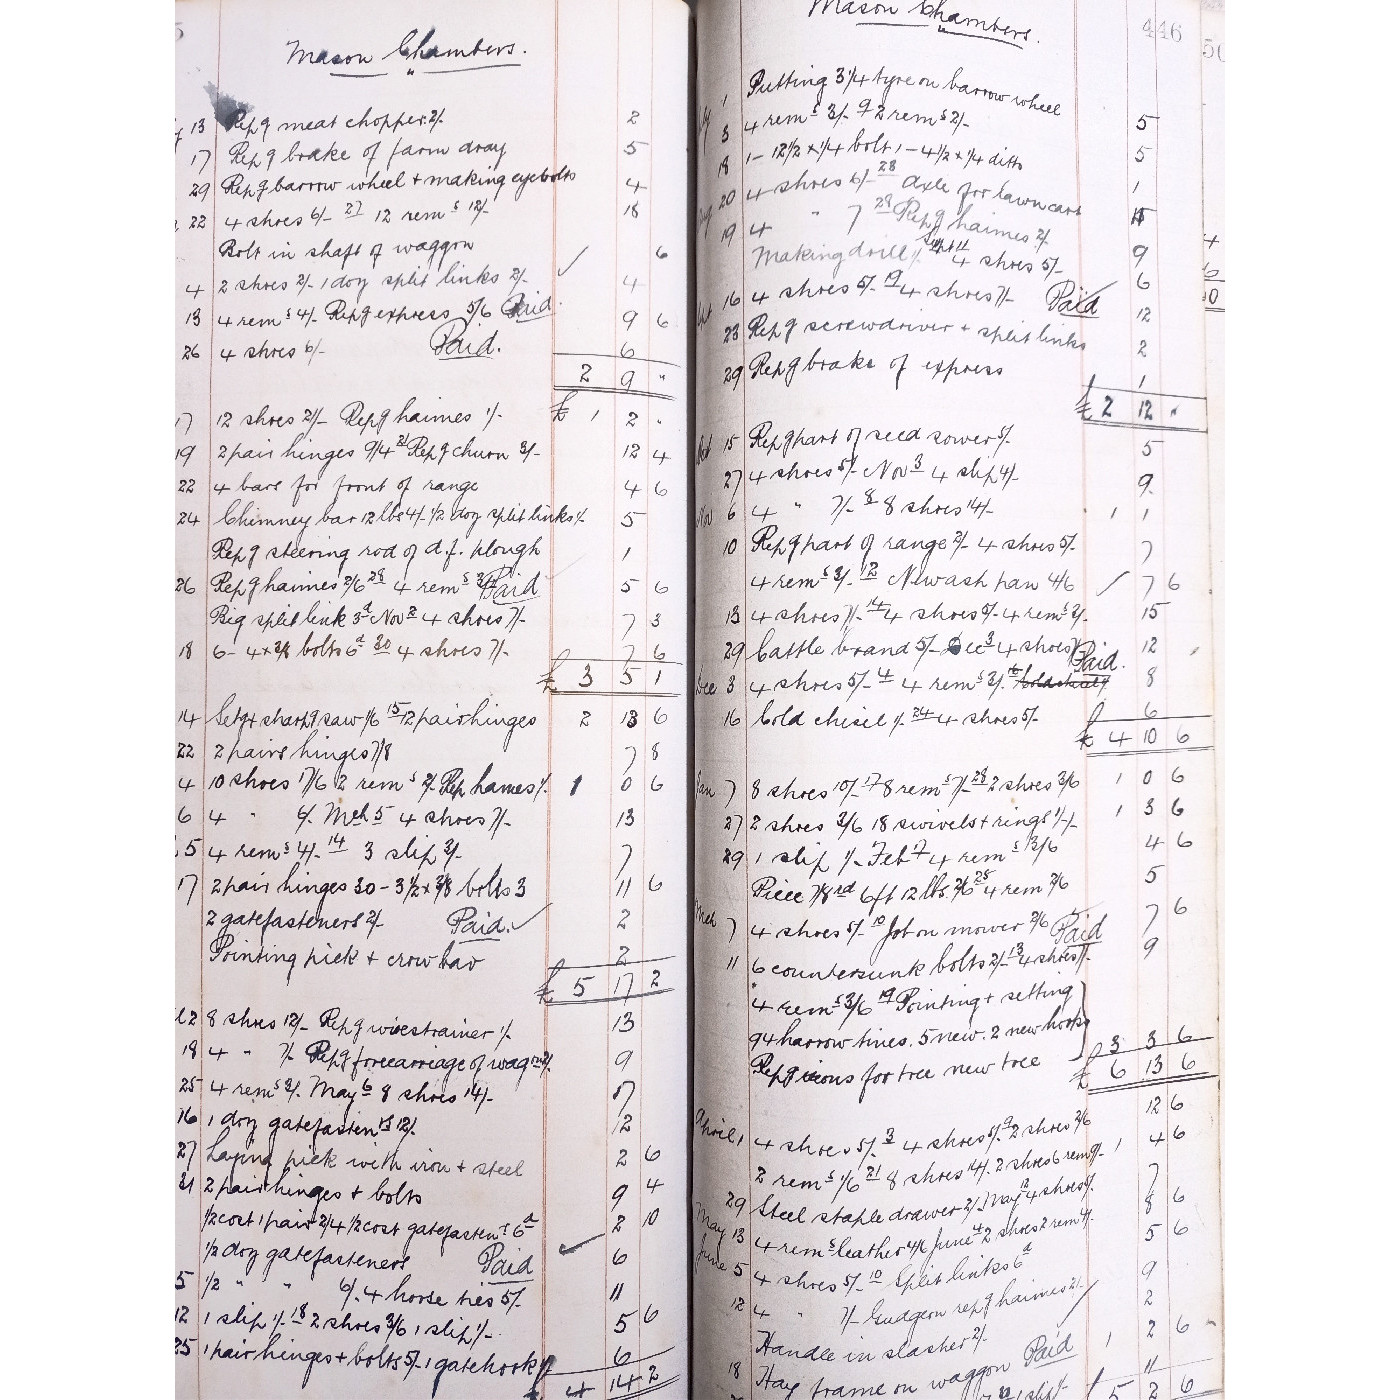 Mason Chambers.
13 Rep g meat chopper 2/- 2
17 Rep g brake of farm dray 5
29 Rep g barrow wheel + making eyebolts 4
22 4 shoes 6/- 27 12 rem s 12/- 18
Bolt in shaft of waggon 6
4 2 shoes 2/- 1 doz split links 2/- 4
13 4 rem s 4/- Rep g express 5/6 Paid. 9 6
26 4 shoes 6/- Paid. 6
2 9 "
17 12 shoes 21/- Rep g haimes 1/- £ 1 2 "
19 2 pair hinges 9/4 21 Rep g churn 3/- 12 4
22 4 bars for front of range 4 6
24 Chimney bar 12 lbs 4/- 1/2 doz split links 1/- 5
Rep g steering rod of d.f. plough 1
26 Rep g haimes 2/6 28 4 rem s 3/- Paid 5 6
Big split link 3d Nov 2 4 shoes 7/- 7 3
18 6 - 4 x 3/8 bolts 6d 30 4 shoes 7/- 7 6
£ 3 5 1
14 Set g + sharp g saw 1/6 15 12 pair hinges 2 13 6
22 2 pairs hinges 7/8 7 8
4 10 shoes 17/6 2 rem s 2/- Rep hames 1/- 1 0 6
6 4 " 6/- Mch 5 4 shoes 7/- 13
5 4 rem s 4/- 14 3 slip 3/- 7
17 2 pair hinges 30 - 3 1/2 x 3/8 bolts 3 11 6
2 gatefasteners 2/- Paid. 2
Pointing pick + crow bar 2
£ 5 17 2
12 8 shoes 12/- Rep g wirestrainer 1/- 13
18 4 " 7/- Rep g forecarriage of wagon 2/- 9
25 4 rem s 3/- May 6 8 shoes 14/- 17
16 1 doz gatefasten rs 12/- 12
27 Laying pick with iron + steel 2 6
31 2 pair hinges + bolts 9 4
1/2 cost 1 pair 2/4 1/2 cost gatefasten r 6d 2 10
1/2 doz gatefasteners Paid 6
5 1/2 " " 6/- 4 horse ties 5/- 11
12 1 slip 1/- 18 2 shoes 3/6 1 slip 1/- 5 6
25 1 pair hinges + bolts 5/- 1 gatehook 1/- 6
£ 4 14 2
Mason Chambers.
446
1 Putting 3 1/4 tyre on barrow wheel
3 4 rem s 3/- 9 2 rem s 2/- 5
18 1 - 12 1/2 x 1/4 bolt 1 - 4 1/2 x 1/4 ditto 5
20 4 shoes 6/- 28 Axle for lawn cart 1
19 4 " 7 28 Rep g haimes 2/- 15
Making drill 1/- Sept 11 4 shoes 5/- 9
16 4 shoes 5/- 19 4 shoes 7/- Paid 6
23 Rep g screwdriver + split links 12
29 Rep g brake of express 2
1
£ 2 12 "
Oct 15 Rep g part of seed sower 5/- 5
27 4 shoes 5/- Nov 3 4 slip 4/- 9
Nov 6 4 " 7/- 8 8 shoes 14/- 1 1
10 Rep g part of range 2/- 4 shoes 5/- 7
4 rem s 3/- 12 New ash pan 4/6 7 6
13 4 shoes 7/- 14 4 shoes 5/- 4 rem s 3/- 15
29 Cattle brand 5/- Dec 3 4 shoes 7/- Paid. 12
Dec 3 4 shoes 5/- 4 4 rem s 3/- 16 Cold chisel 1/- 8
16 Cold chisel 1/- 24 4 shoes 5/- 6
£ 4 10 6
Jan 7 8 shoes 10/- 17 8 rem s 7/- 28 2 shoes 3/6 1 0 6
27 2 shoes 3/6 18 swivels + rings 1/- 1 3 6
29 1 slip 1/- Feb 7 4 rem s 3/6 4 6
Piece 7/8 rd 6ft 12 lbs. 2/6 25 4 rem 2/6 5
Mch 7 4 shoes 5/- 10 Job on mower 2/6 Paid 7 6
11 6 countersunk bolts 2/- 13 4 shoes 7/- 9
4 rem s 3/6 19 Pointing + setting
94 harrow tines. 5 new. 2 new hooks
Rep g irons for tree new tree 3 3 6
£ 6 13 6
April 1 4 shoes 5/- 3 4 shoes 5/- 9 2 shoes 2/6 12 6
2 rem s 1/6 21 8 shoes 14/- 2 shoes 6 rem 9/- 1 4 6
29 Steel staple drawer 2/- May 12 4 shoes 5/- 7
May 13 4 rem s leather 4/6 June 4 2 shoes 2 rem 4/- 8 6
June 5 4 shoes 5/- 10 Split links 6d 5 6
12 4 " 7/- Gudgeon rep g haimes 2/- 9
Handle in slasher 2/- 2
18 Hay frame on waggon Paid 1 2 6
1 slip 1/- 11
5 2 6